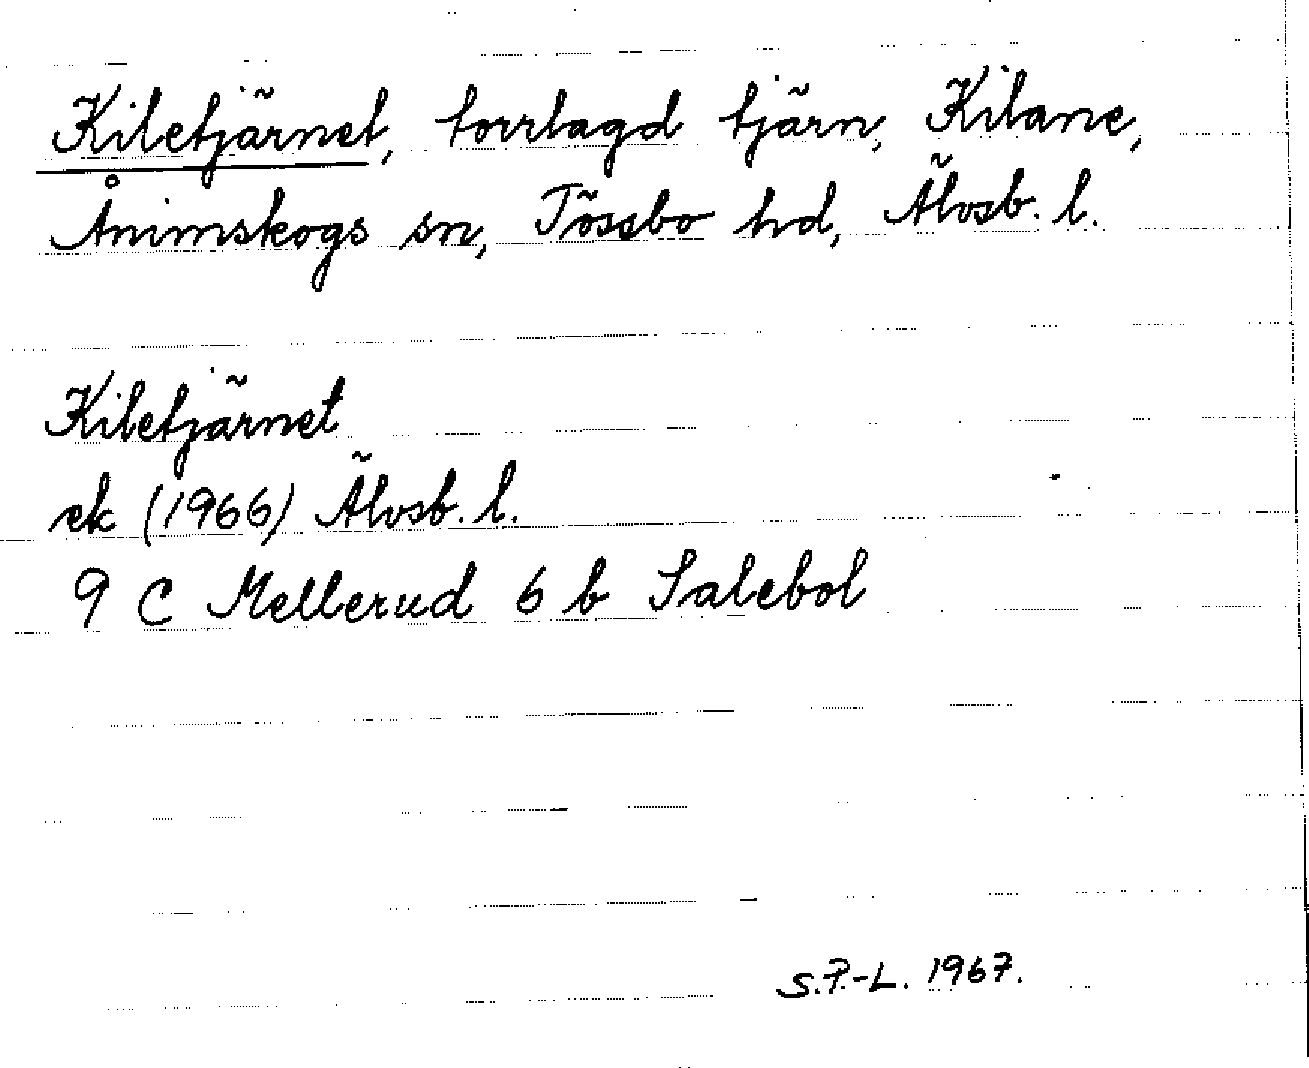 Kiletjärnet, torrlagd tjärn, Kilane,
Ånimskogs sn, Tössbo hd, Älvsb. l.
Kiletjärnet
ek (1966) Älvsb. l.
9 C Mellerud 6 b Salebol
S.P.-L. 1967.